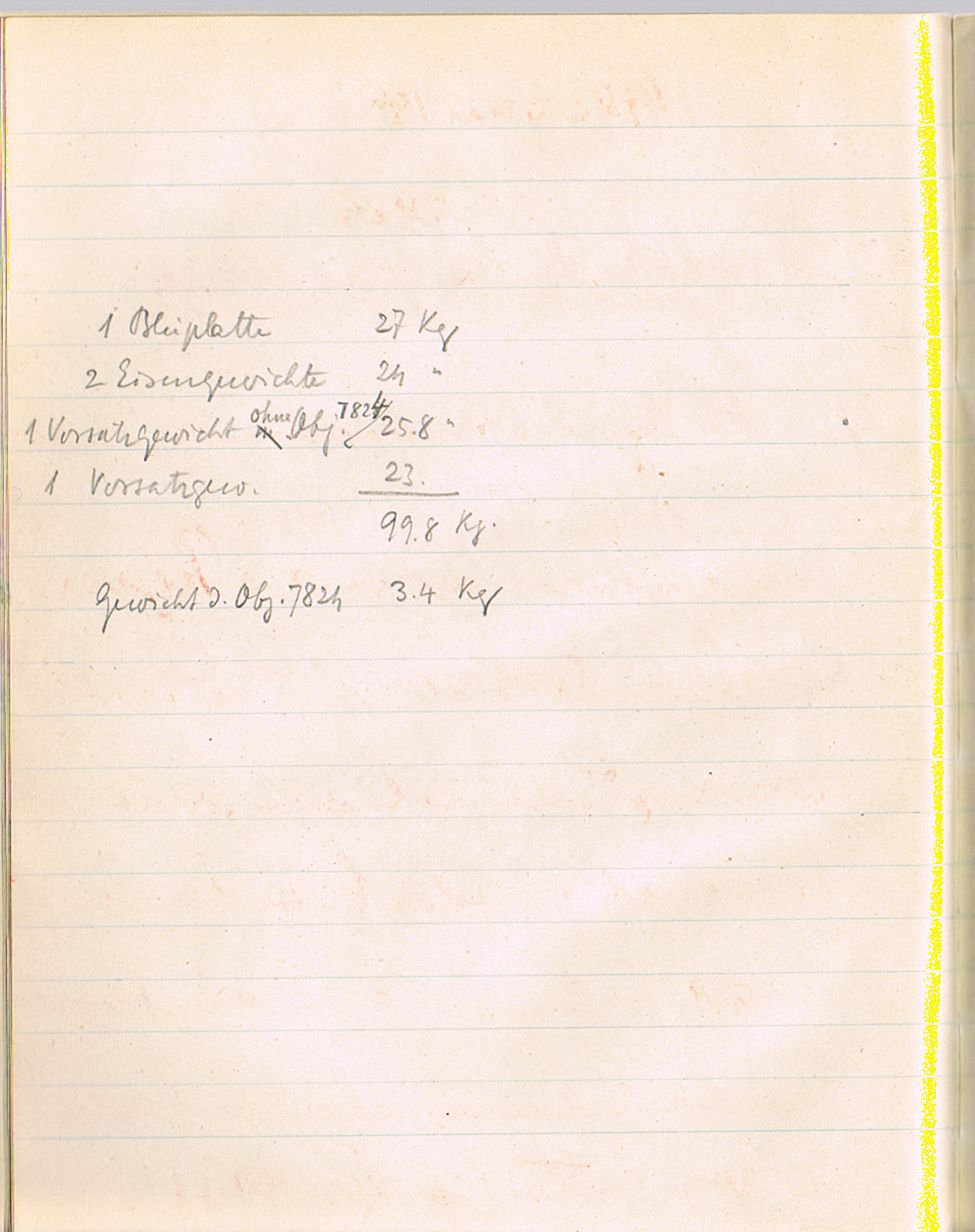 1 Bleiplatte 27 Kg
2 Eisengewichte 24 "
1 Vorsatzgewicht ohne Obj. 7824 25.8 "
1 Vorsatzgew. 23.
99.8 Kg.
Gewicht d. Obj. 7824 3.4 Kg